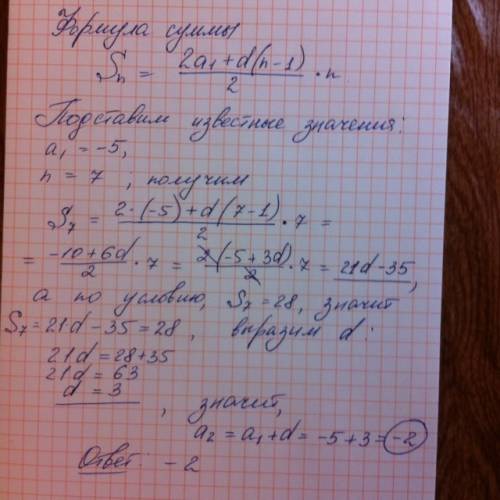 Формула суммы
Sn = (2a₁ + d(n-1))/2 · n
Подставим известные значения:
a₁ = -5,
n = 7 ; получим
S₇ = (2·(-5) + d(7-1))/2 · 7 =
= (-10+6d)/2 · 7 = 2(-5+3d)/2 · 7 = 21d-35,
а по условию, S₇ = 28, значит
S₇ = 21d - 35 = 28, выразим d:
21d = 28+35
21d = 63
d = 3, значит,
a₂ = a₁ + d = -5 + 3 = -2
Ответ: -2